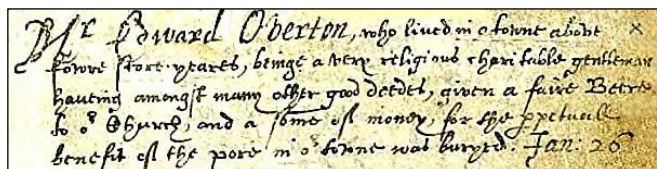 Mr Edward Oberton, who lived in or towne above ×
fowre score yeares, beinge a very religious charitable gentleman
haveing amongst many other good deedes, given a faire Beere
to or Church, and a some of money, for the ppetuall
benefit of the pore in or towne was buryed. Jan: 26